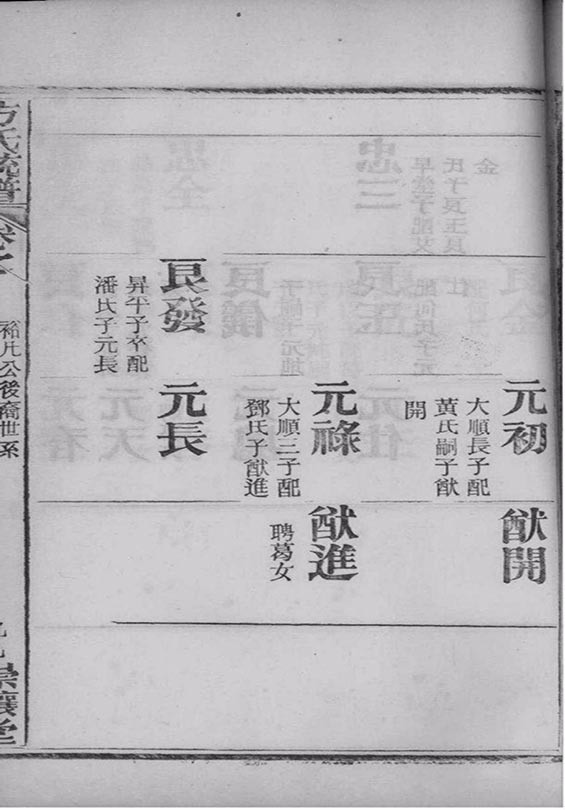 元初
大順長子配
黃氏嗣子猷
開
猷開
元祿
大順三子配
鄧氏子猷進
猷進
聘葛女
良發
昇平子卒配
潘氏子元長
元長
方氏統譜
裕凡公後裔世系